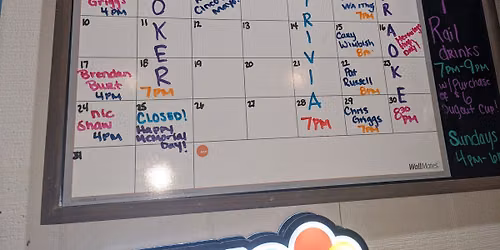 Griggs
4PM
Cinco
Mayo!
7PM
10
11
12
13
14
15
16
Casey
8PM
Morning
Day!
17
18
19
20
21
22
23
Brendan
Burt
4PM
7PM
Pat
Russell
8PM
24
25
26
27
28
29
30
Nic
Shaw
4PM
CLOSED!
Happy
Memorial
Day!
7PM
Chris
Griggs
7PM
8:30
PM
31
OKER
TRIVIA
RAOKE
WallMates
Rail
drinks
7PM-9PM
w/Purchase
of $6
Cup
Sundays
4PM-